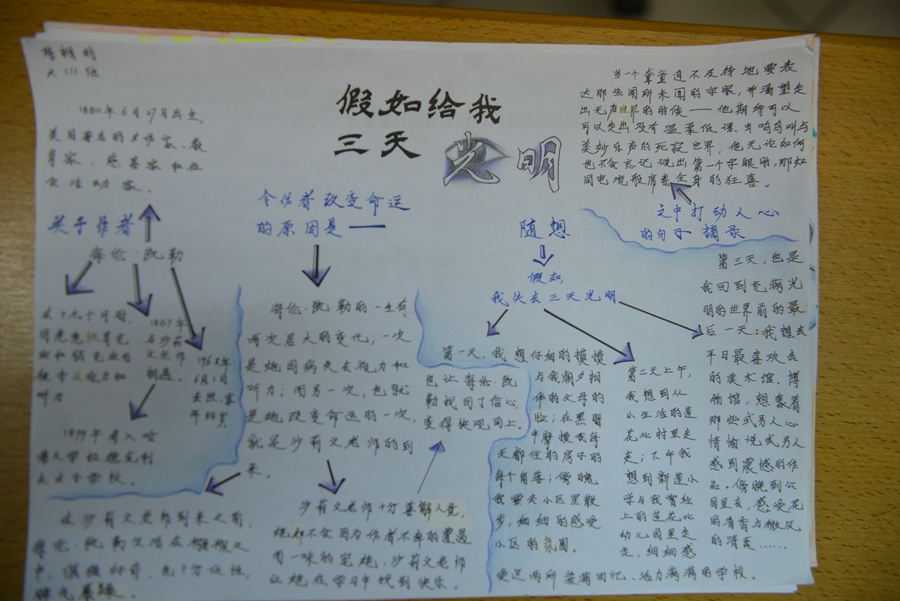 六(1)班
假如给我
三天光明
1880年6月27日出生,
美国著名的女作家、教
育家、慈善家和社
会活动家。
关于作者
海伦·凯勒
在十九个月时,
听力
1887年
与沙莉
文老师
相遇。
1968年
6月1日
去世,享
年88岁
1899年考入哈
佛大学拉德克利
夫女子学校。
令作者改变命运
的原因是——
海伦·凯勒的一生有
两次居大的变化,一次
是她因病失去视力和
听力;而另一次,也就
是她改变命运的一次,
就是沙莉文老师的到
来。
在沙莉文老师到来之前,
海伦·凯勒生活在模糊之
中,
脾气暴躁。
沙莉文老师十分善解人意,
她却不会因为作者不幸的遭遇
而一味的宠她。沙莉文老师
让她在学习中找到快乐。
也让海伦·凯
勒找回了信心,
变得快观向上。
随想
假如,
我失去三天光明
第一天,我想仔细的摸摸
与我朝夕相
伴的父母的
脸;在黑暗
中摩摸我每
天都住的房子的
每个角落;傍晚,
我要去小区里散
步,细细的感受
小区的氛围。
第二天上午,
我想到从
小生活的莲
花北村里走
走;下午我
想到新莲小
学与我曾经
上的莲花北
幼儿园里走
走,细细感
受这两所装满回忆、活力满满的学校。
第三天,也是
我回到充满光
明的世界前的最
后一天:我想去
平日最喜欢去
的美术馆、博
物馆,想象着
那些或另人心
情愉悦或另人
感到震撼的作
品。傍晚到公
园里去,感受花
的清香与微风
的清爽……
文中打动人心
的句子摘录
当一个聋童迫不及待地要表
达那些闻所未闻的字眼,并渴望走
出无声世界的时候——他期待可以
可以走出没有温柔低语、
美妙乐声的死寂世界,他无论如何
也不会忘记说出第一个字眼时,那如
同电流般席卷全身的狂喜。